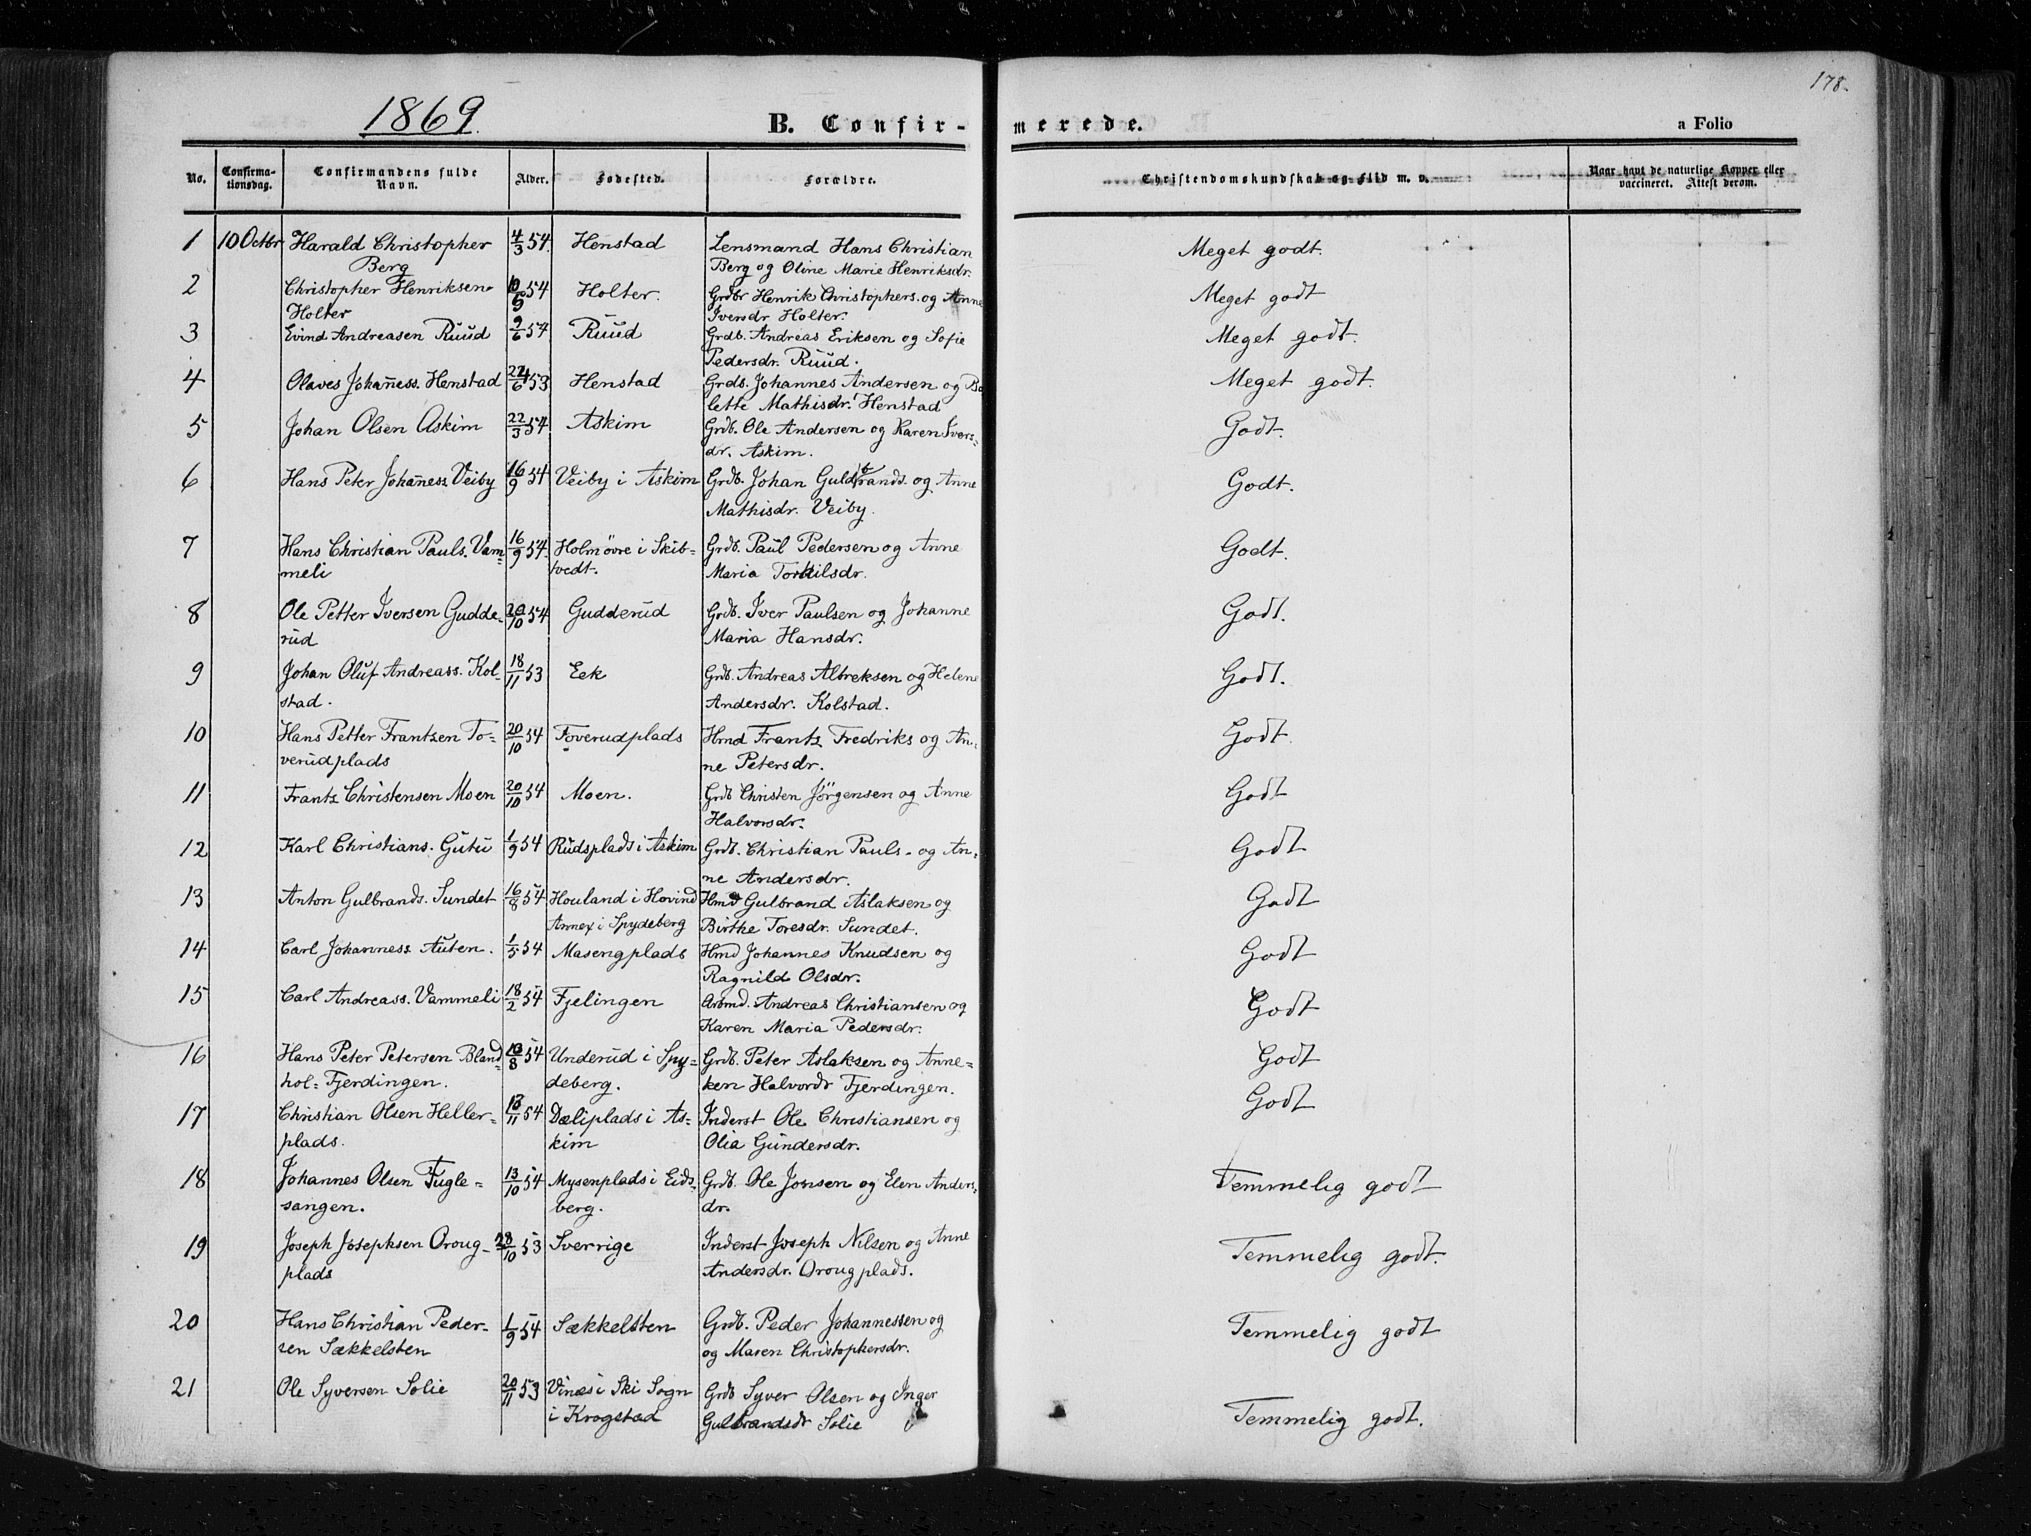 178.
1869.
B. Confir- merede. a Folio
No. Confirma- tionsdag. Confirmandens fulde Navn. Alder. Fødested. Forældre. Christendomskundskab og Flid m. v. Naar havt de naturlige Kopper eller vaccineret. Attest derom.
1 10 Octbr Harald Christopher 4/3 54. Henstad Lensmand Hans Christian Meget godt.
Berg Berg og Oline Marie Henriksdr.
2 Christopher Henriksen 54 Holter. Grdbr Henrik Christophers. og Anne Meget godt
Holter Iversdr Holter.
3 Eivind Andreasen Ruud 54. Ruud Grdb. Andreas Eriksen og Sofie Meget godt.
Pedersdr. Ruud.
4 Olaves Johañess. Henstad 53 Henstad Grdb. Johannes Andersen og Bo Meget godt.
lette Mathisdr. Henstad
5 Johan Olsen Askim 22/3 54. Askim Grdb. Ole Andersen og Karen Ivers- Godt.
dr. Askim.
6 Hans Peter Johañess. Veiby 16/9 54 Veiby i Askim Grdb. Johan Guldbrands. og Anne Godt.
Mathisdr. Veiby.
7 Hans Christian Pauls. Vam- 16/9 54. Holmøvre i Skib- Grdb. Paul Pedersen og Anne Godt.
meli tvedt. Maria Torkilsdr.
8 Ole Petter Iversen Gudde- 20/10 54 Gudderud Grdb. Iver Paulsen og Johanne Godt.
rud Maria Hansdr.
9 Johan Oluf Andreass. Kol- 18/11 53 Eek Grdb. Andreas Albreksen og Helene Godt.
stad. Andersdr. Kolstad.
10 Hans Petter Frantzen To- 20/10 54 Toverudplads Hmd Frantz Fredriks og An- Godt.
verudplads ne Petersdr.
11 Frantz Christensen Moen 20/10 54 Moen. Grdb Christen Jörgensen og Anne Godt
Halvorsdr.
12 Karl Christians. Gutu 1/9 54 Rudsplads i Askim Grdb. Christian Pauls- og An- Godt
ne Andersdr.
13 Anton Gulbrands. Sundet 16/8 54 Houland i Hovind Hmd Gulbrand Aslaksen og Godt
Annex i Spydeberg Birthe Toresdr. Sundet.
14 Carl Johanness. Auten. 1/5 54 Masengplads Hmd Johannes Knudsen og Godt
Ragnild Olsdr.
15 Carl Andreass. Vammeli 18/2 54 Fjelingen Arbmd. Andreas Christiansen og Godt
Karen Maria Pedersdr.
16 Hans Peter Petersen Bland 54 Underud i Spy- Grdb. Peter Aslaksen og Anne- Godt
hol= Fjerdingen. deberg. ken Halvordr Fjerdingen.
17 Christian Olsen Heller- 54 Dæliplads i As- Inderst Ole Christiansen og Godt
plads. kim Olia Gundersdr.
18 Johannes Olsen Fugle- 13/10 54 Mysenplads i Eids- Grdb. Ole Jonsen og Elen Anders- Temmelig godt
sangen. berg. dr.
19 Joseph Josephsen Oroug- 28/10 53 Sverrige Inderst Joseph Nilsen og Anne Temmelig godt.
plads Andersdr. Oroug plads.
20 Hans Christian Peder- 1/9 54 Sækkelsten Grdb. Peder Johannessen og Temmelig godt
sen Sækkelsten og Maren Christophersdr.
21 Ole Syversen Solie 20/11 53 Vinæs i Ski Sogn Grdb Syver Olsen og Inger Temmelig godt.
i Krogstad Gulbrandsdr Solie